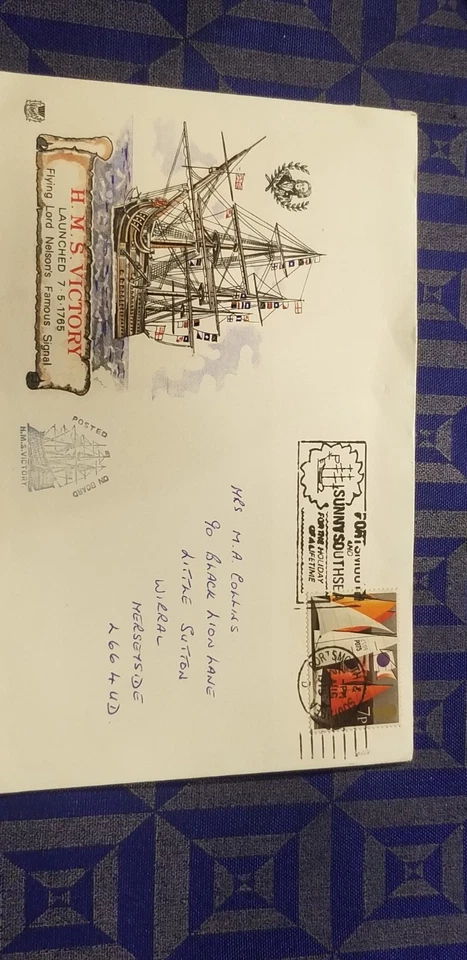 H.M.S. VICTORY
LAUNCHED 7·5·1765
Flying Lord Nelson's Famous Signal
POSTED
ON BOARD
H.M.S. VICTORY
PORTSMOUTH
AND
SUNNY SOUTHSEA
FOR THE HOLIDAY
OF A LIFETIME
7P
MRS M.A. COLLINS
90 BLACK LION LANE
LITTLE SUTTON
WIRRAL
MERSEYSIDE
L66 4UD.